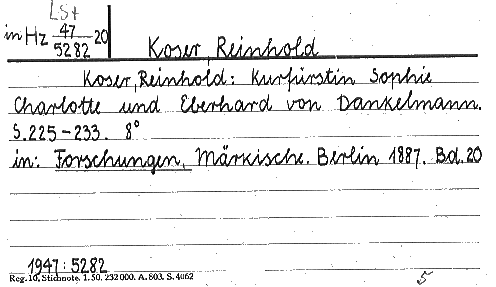 LSt
in Hz 47/5282-20
Koser, Reinhold
Koser, Reinhold: Kurfürstin Sophie
Charlotte und Eberhard von Dankelmann.
S. 225-233. 8°
in: Forschungen, Märkische. Berlin 1887. Bd. 20
1947:5282
Reg. 10. Stichnote. 1. 50. 232000. A. 803. S. 4062
5